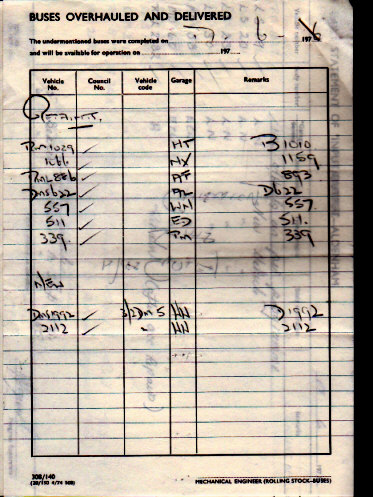 BUSES OVERHAULED AND DELIVERED
The undermentioned buses were completed on 5. 6 - 1976
and will be available for operation on 197
Vehicle No. Council No. Vehicle code Garage Remarks
Rm1029 ✓ HT B1010
1066 ✓ NX 1159
RmL886 ✓ AF 893
Dms622 ✓ AL D622
557 ✓ WN 557
511 ✓ ED 511.
339 ✓ Pm 339
NEW
Dms1992 ✓ 3/2Dm 5 WN D1992
2112 ✓ " WN 2112
308/140
MECHANICAL ENGINEER (ROLLING STOCK—BUSES)